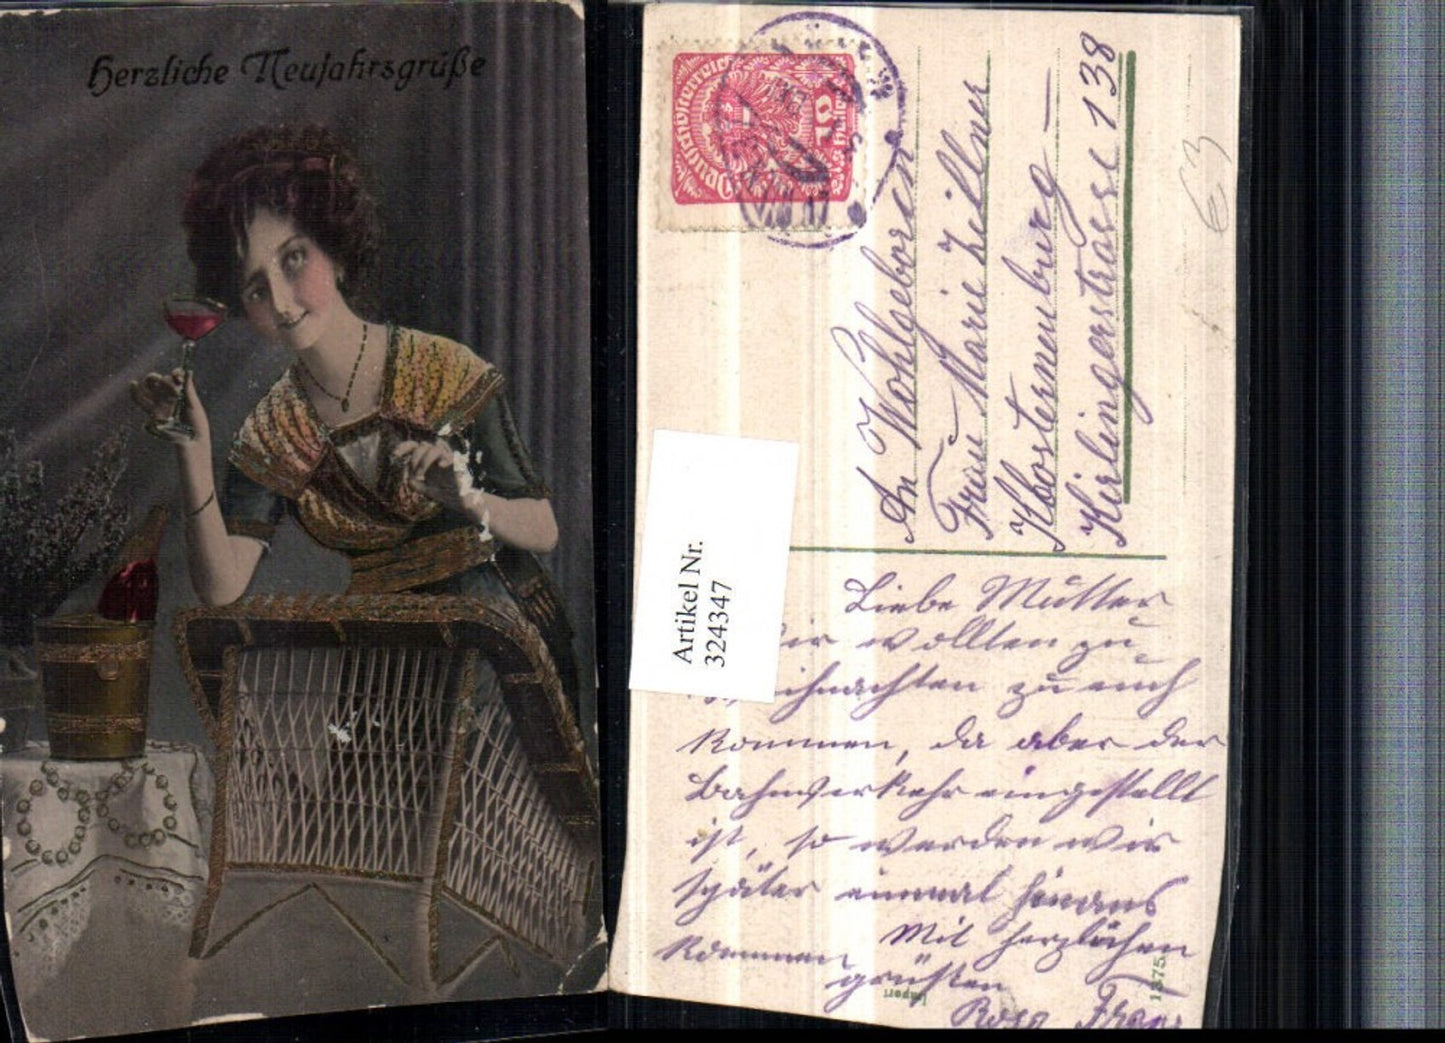 Herzliche Neujahrsgrüße
Deutschösterreich
10
Heller
An Wohlgeboren
Frau Marie Zillner
Klosterneuburg
Kierlingerstrasse 138
€3
Artikel Nr.
324347
Liebe Mutter
wir wollten zu
Weihnachten zu euch
kommen, da aber der
Bahnverkehr eingestellt
ist, so werden wir
später einmal hinaus
kommen Mit herzlichen
grüßen
Rosa